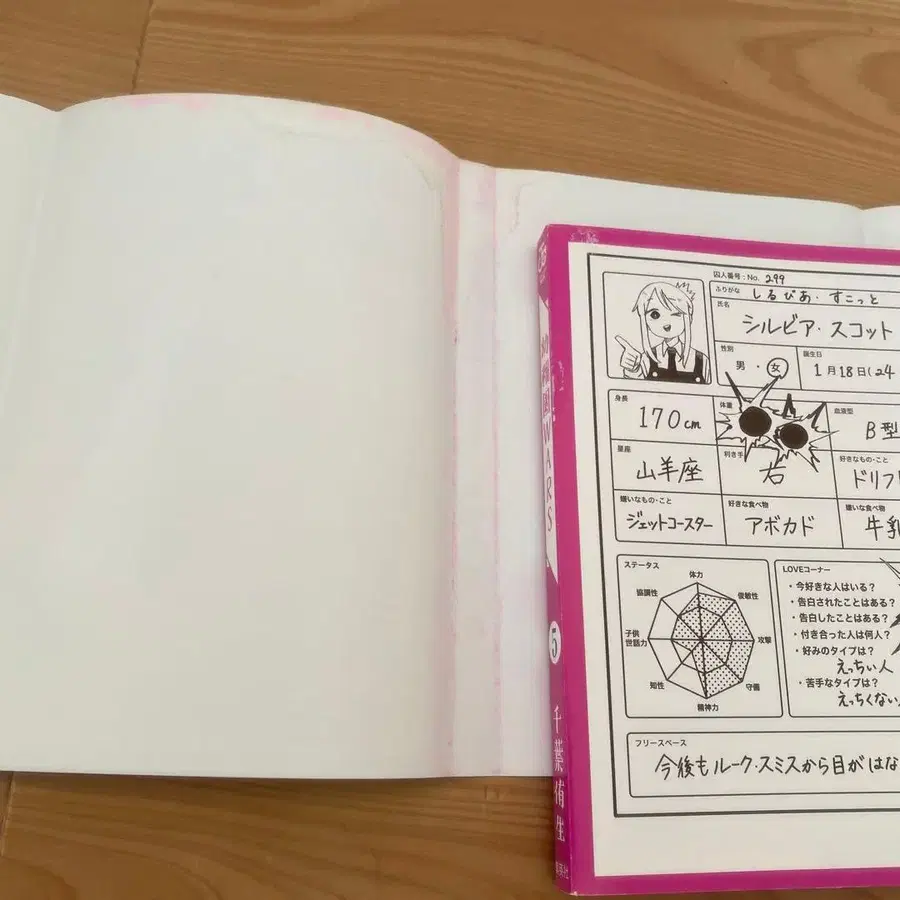 囚人番号:No. 299
ふりがな しるびあ・すこっと
氏名 シルビア・スコット
性別 男・女
誕生日 1月18日(24
身長 170cm
体重
血液型 B型
星座 山羊座
利き手 右
好きなもの・こと ドリフ
嫌いなもの・こと ジェットコースター
好きな食べ物 アボカド
嫌いな食べ物 牛乳
ステータス
体力
俊敏性
攻撃
守備
精神力
知性
子供世話力
協調性
LOVEコーナー
・今好きな人はいる?
・告白されたことはある?
・告白したことはある?
・付き合った人は何人?
・好みのタイプは?
えっちい人
・苦手なタイプは?
えっちくない
フリースペース
今後もルーク・スミスから目がはな
園WARS
5
千葉侑生
集英社